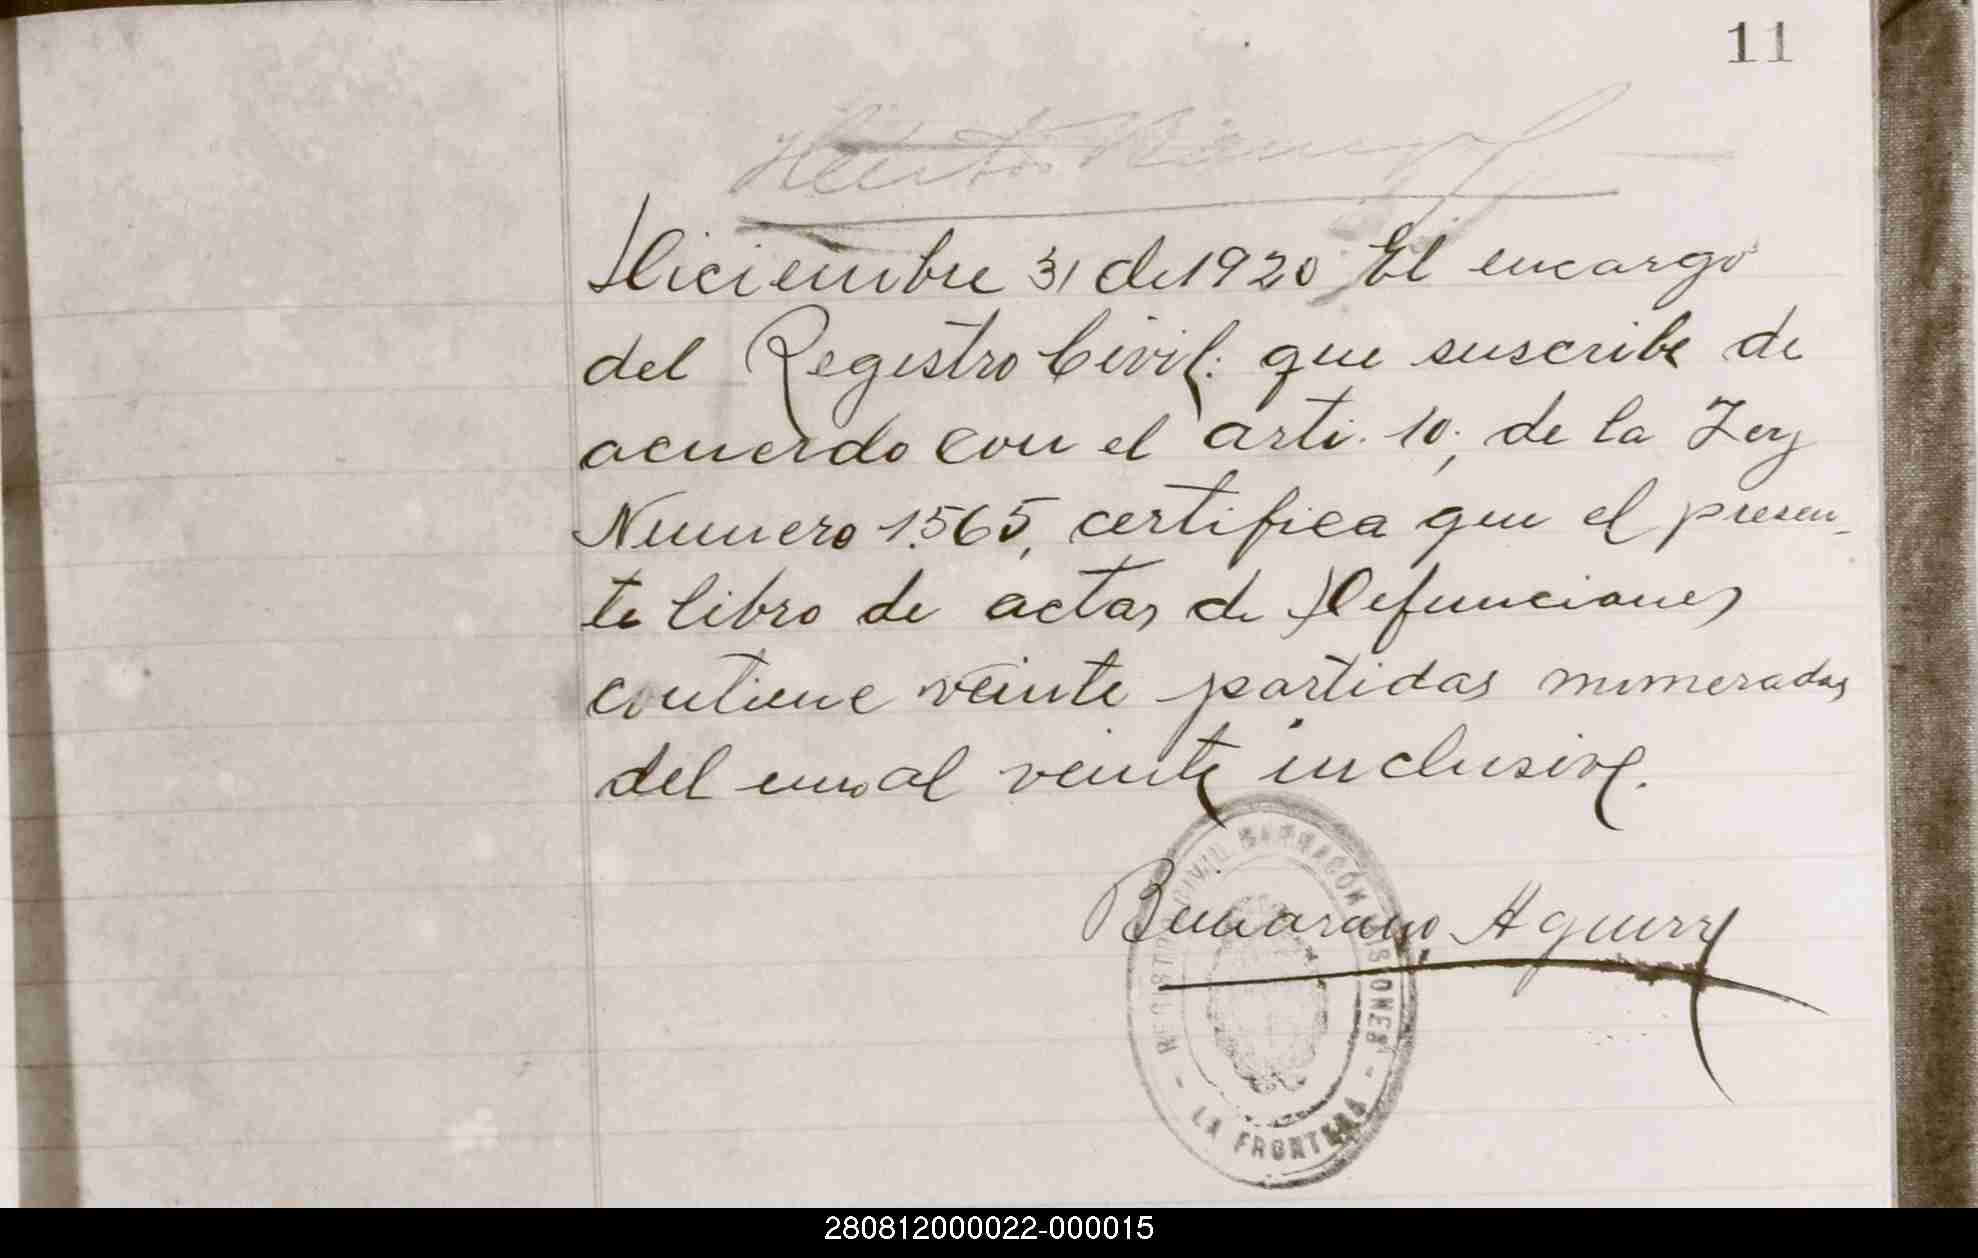 11
Diciembre 31 de 1920 El encargo
del Registro Civil: que suscribe de
acuerdo con el arti. 10, de la Ley
Numero 1.565, certifica que el presen-
te libro de actas de Defunciones
contiene veinte partidas numeradas
del uno al veinte inclusive.
Aguirre
REGISTRO CIVIL BARRACÓN MISIONES
- LA FRONTERA -
280812000022-000015